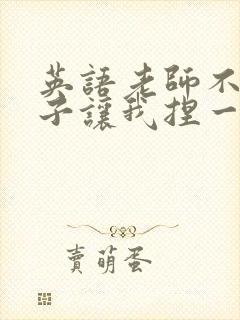 英語老師不
子讓我捏一
賣萌蛋